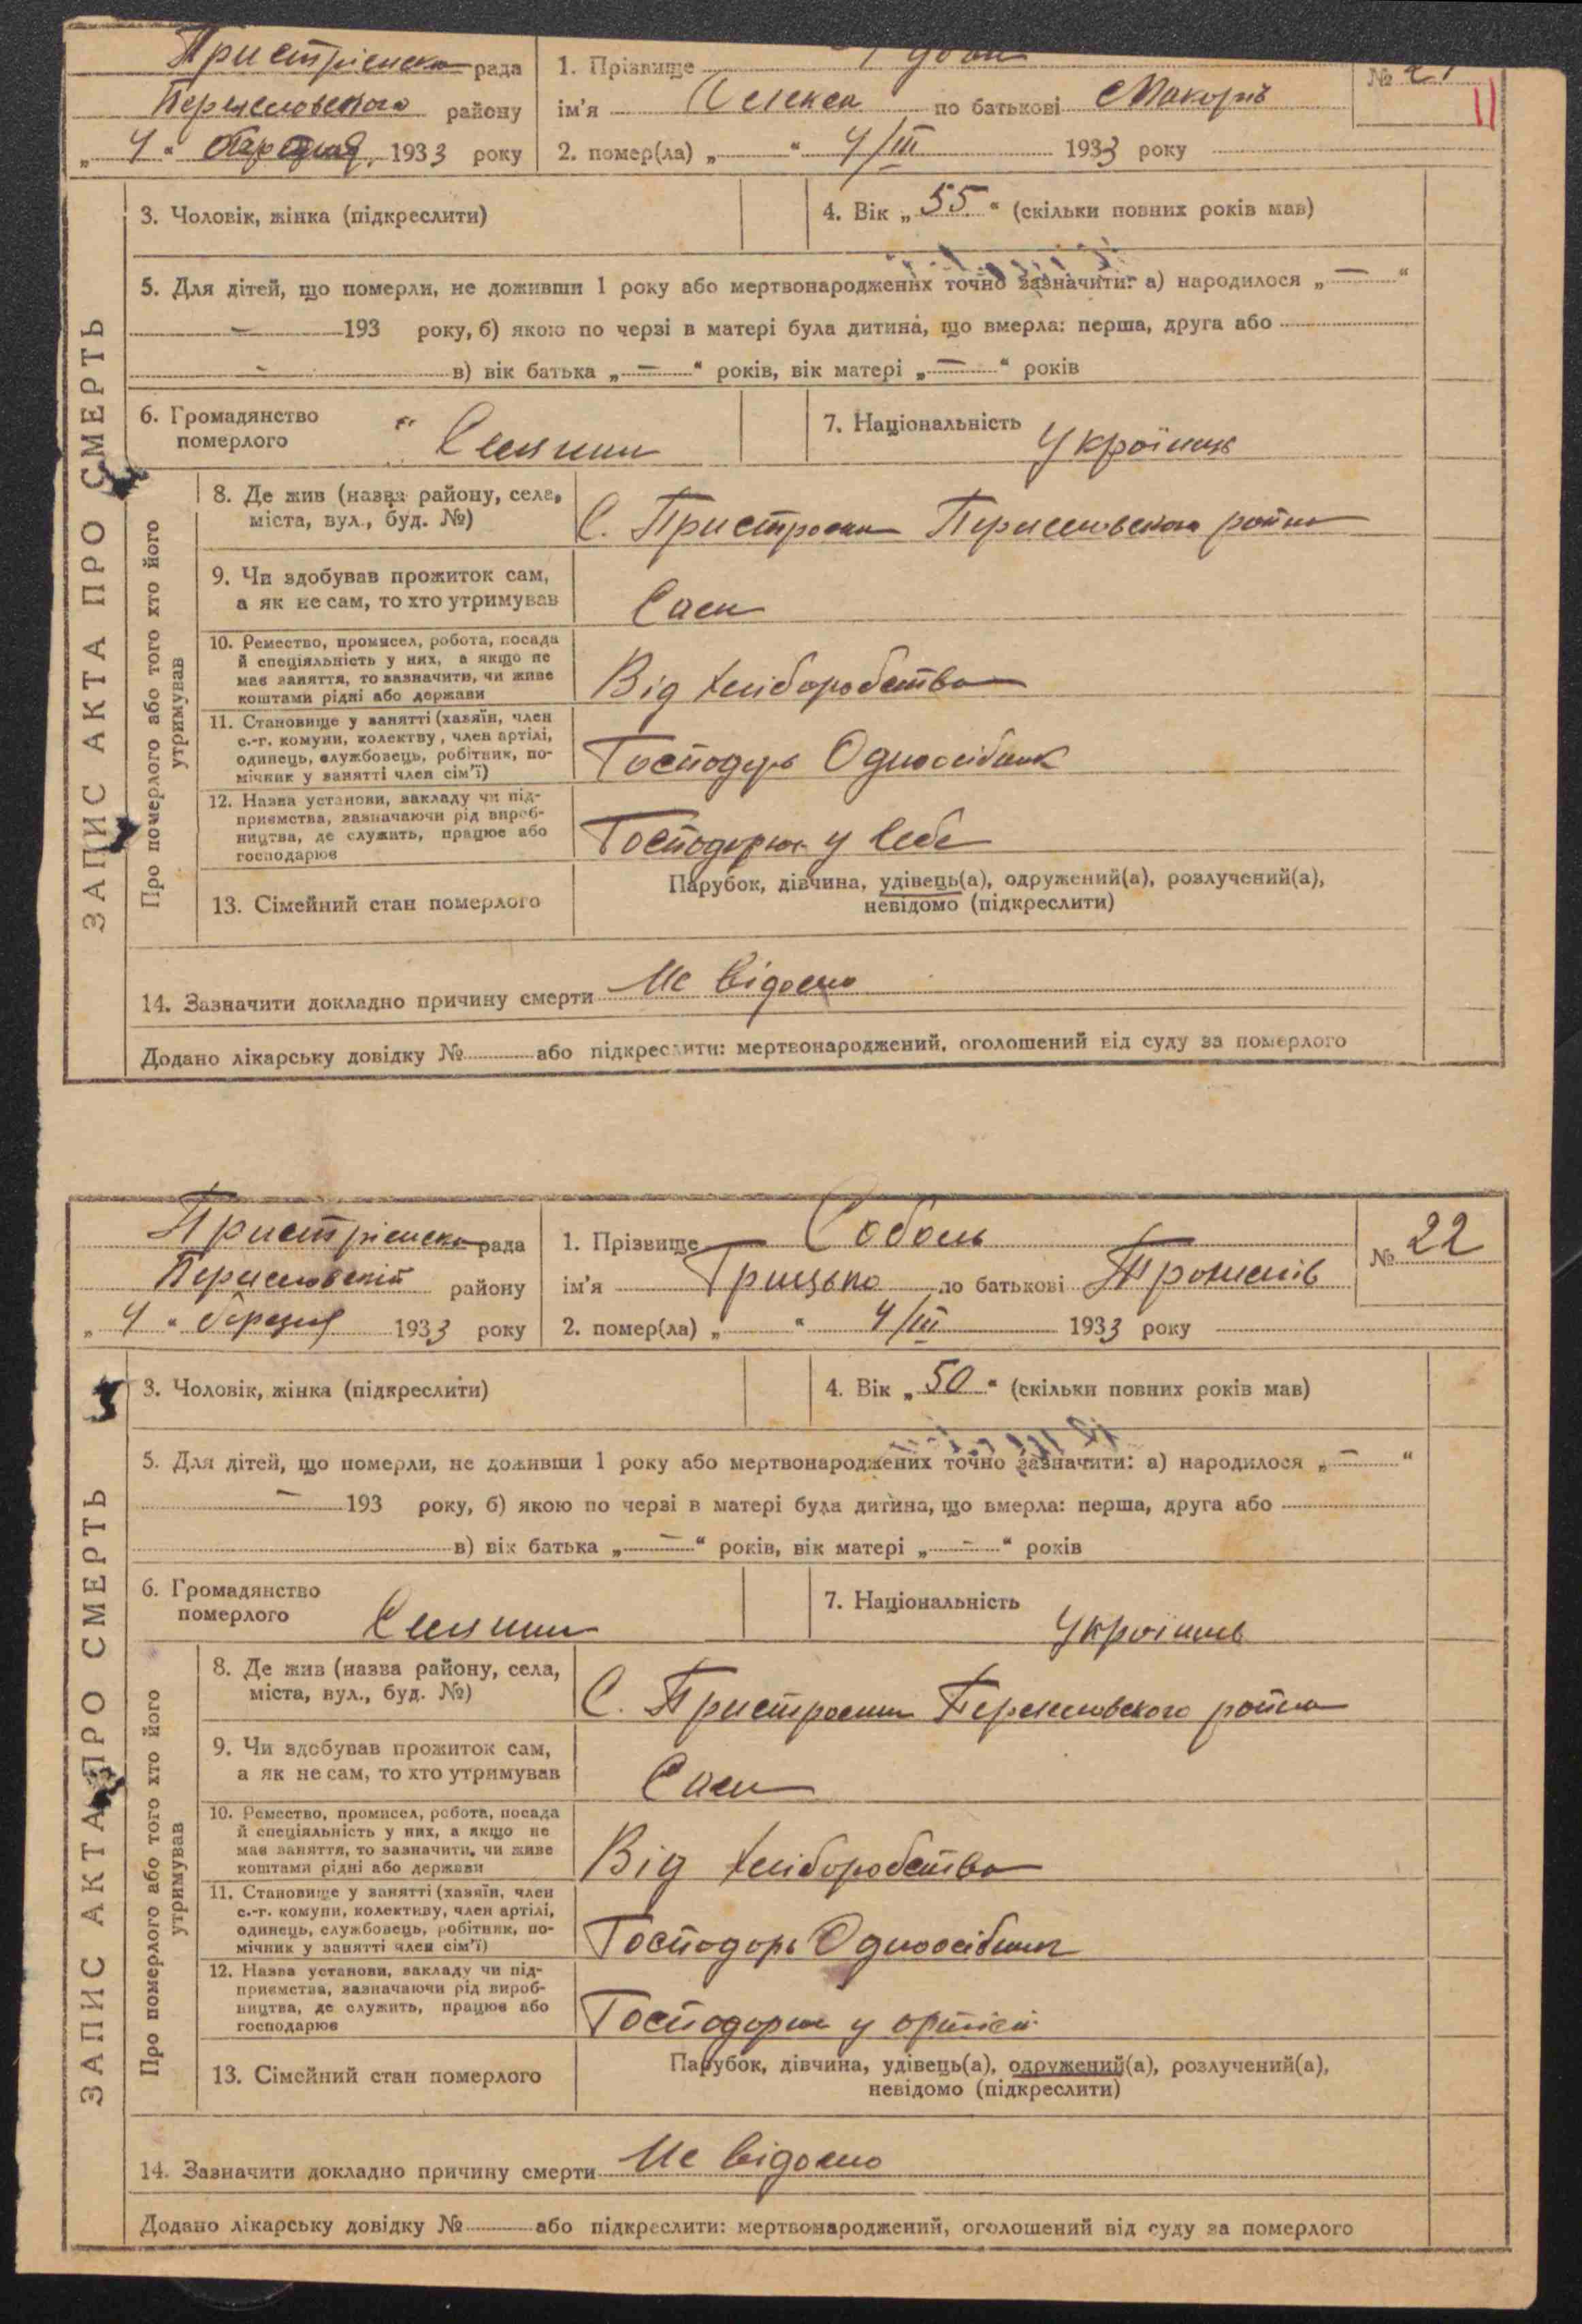 Пристрімська рада
Переяславського району
„ 4 “ березня 1933 року
1. Прізвище
ім'я Олекса по батькові Макорів
2. помер(ла) „—“ 4/III 1933 року
№ 21
11
ЗАПИС АКТА ПРО СМЕРТЬ
3. Чоловік, жінка (підкреслити)
4. Вік „ 55 “ (скільки повних років мав)
5. Для дітей, що померли, не доживши 1 року або мертвонароджених точно зазначити: а) народилося „ — “
— 193 року, б) якою по черзі в матері була дитина, що вмерла: перша, друга або
- в) вік батька „ — “ років, вік матері „ — “ років
6. Громадянство
померлого
Селянин
7. Національність Українець
Про померлого або того хто його
утримував
8. Де жив (назва району, села,
міста, вул., буд. №)
С. Пристроми Переяславського району
9. Чи здобував прожиток сам,
а як не сам, то хто утримував
Сам
10. Ремество, промисел, робота, посада
й спеціяльність у них, а якщо не
має заняття, то зазначити, чи живе
коштами рідні або держави
Від хліборобства
11. Становище у занятті (хазяїн, член
с.-г. комуни, колектву, член артілі,
одинець, службовець, робітник, по-
мічник у занятті член сім'ї)
Господарь Одноосібник
12. Назва установи, закладу чи під-
приємства, зазначаючи рід вироб-
ництва, де служить, працює або
господарює
Господарює у себе
13. Сімейний стан померлого
Парубок, дівчина, удівець(а), одружений(а), розлучений(а),
невідомо (підкреслити)
14. Зазначити докладно причину смерти Не відомо
Додано лікарську довідку № або підкреслити: мертвонароджений, оголошений від суду за померлого
Пристрімська рада
Переяславській району
„ 4 “ березня 1933 року
1. Прізвище Соболь
ім'я Грицько по батькові Трохимів
2. помер(ла) „—“ 4/III 1933 року
№ 22
ЗАПИС АКТА ПРО СМЕРТЬ
3. Чоловік, жінка (підкреслити)
4. Вік „ 50 “ (скільки повних років мав)
5. Для дітей, що померли, не доживши 1 року або мертвонароджених точно зазначити: а) народилося „ — “
— 193 року, б) якою по черзі в матері була дитина, що вмерла: перша, друга або
в) вік батька „ — “ років, вік матері „ - “ років
6. Громадянство
померлого
Селянин
7. Національність Українець
Про померлого або того хто його
утримував
8. Де жив (назва району, села,
міста, вул., буд. №)
С. Пристроми Переяславського району
9. Чи здобував прожиток сам,
а як не сам, то хто утримував
Сам
10. Ремество, промисел, робота, посада
й спеціяльність у них, а якщо не
має заняття, то зазначити, чи живе
коштами рідні або держави
Від хліборобства
11. Становище у занятті (хазяїн, член
с.-г. комуни, колективу, член артілі,
одинець, службовець, робітник, по-
мічник у занятті член сім'ї)
Господорь Одноосібник
12. Назва установи, закладу чи під-
приємства, зазначаючи рід вироб-
ництва, де служить, працює або
господарює
Господорює у артілі
13. Сімейний стан померлого
Парубок, дівчина, удівець(а), одружений(а), розлучений(а),
невідомо (підкреслити)
14. Зазначити докладно причину смерти Не відомо
Додано лікарську довідку № або підкреслити: мертвонароджений, оголошений від суду за померлого